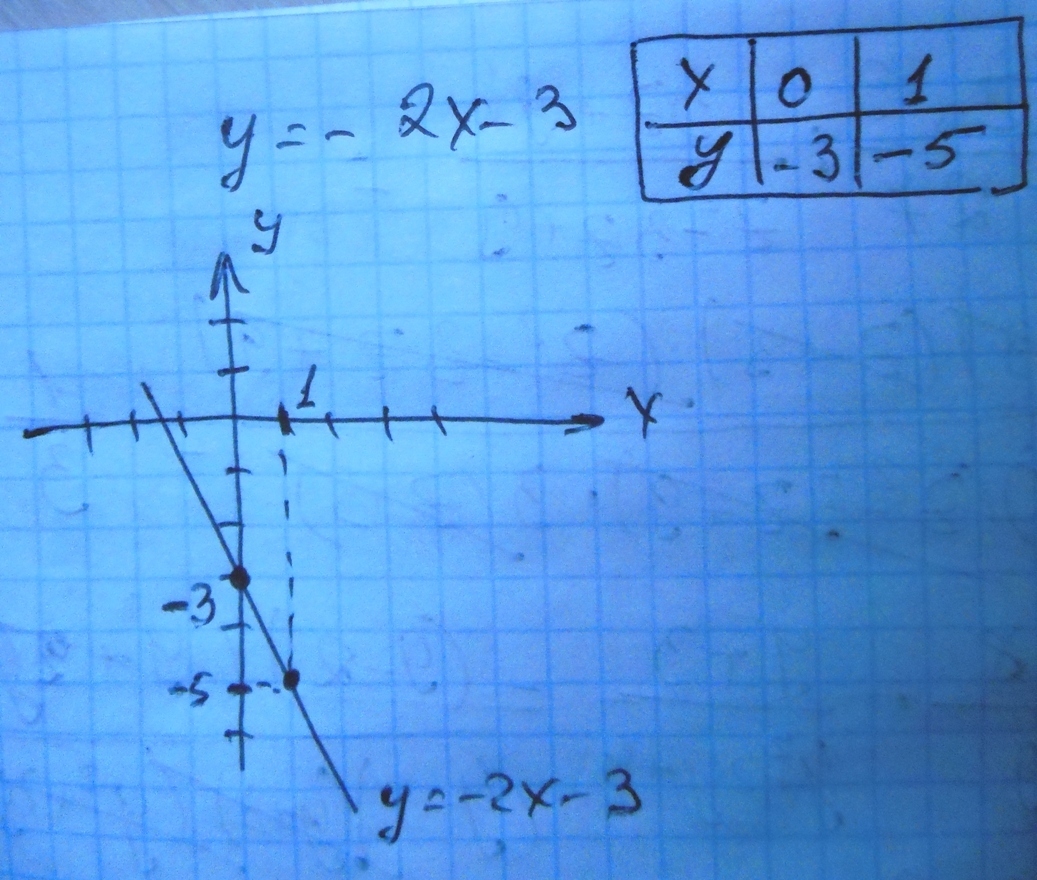 y = - 2x - 3
x 0 1
y -3 -5
y
1
x
-3
-5
y = -2x - 3